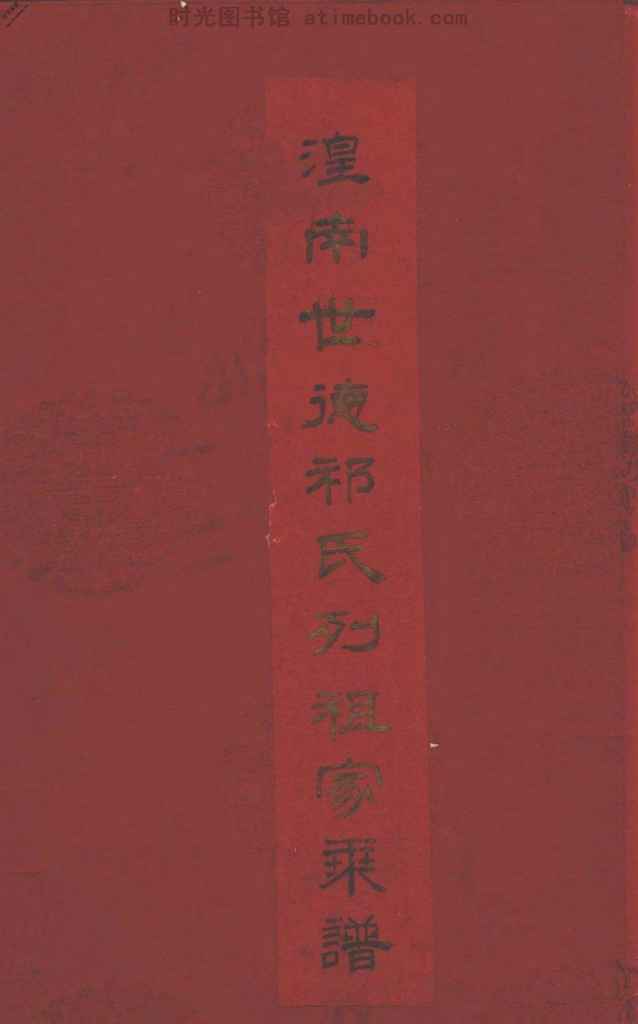 时光图书馆 atimebook.com
湟南世德祁氏列祖家乘譜